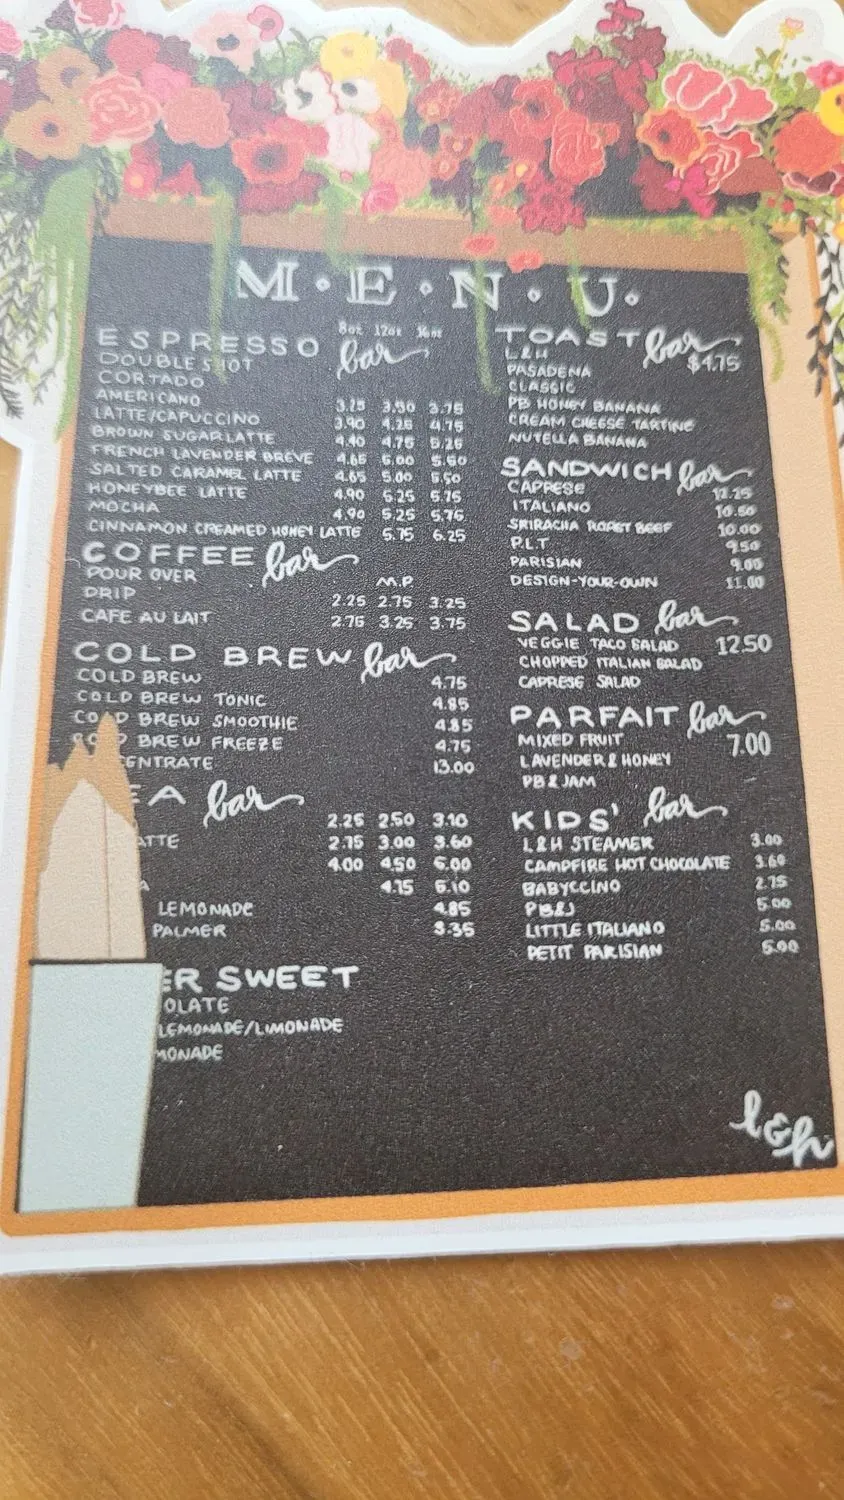 M·E·N·U·
8oz 12oz 16oz
ESPRESSO bar
DOUBLE SHOT
CORTADO
AMERICANO 3.25 3.50 3.75
LATTE/CAPUCCINO 3.90 4.25 4.75
BROWN SUGAR LATTE 4.40 4.75 5.25
FRENCH LAVENDER BREVE 4.65 5.00 5.50
SALTED CARAMEL LATTE 4.65 5.00 5.50
HONEYBEE LATTE 4.90 5.25 5.75
MOCHA 4.90 5.25 5.75
CINNAMON CREAMED HONEY LATTE 5.75 6.25
COFFEE bar
POUR OVER M.P.
DRIP 2.25 2.75 3.25
CAFE AU LAIT 2.75 3.25 3.75
COLD BREW bar
COLD BREW 4.75
COLD BREW TONIC 4.85
COLD BREW SMOOTHIE 4.85
COLD BREW FREEZE 4.75
ENTRATE 13.00
EA bar
2.25 2.50 3.10
ATTE 2.75 3.00 3.60
4.00 4.50 5.00
A 4.75 5.10
LEMONADE 4.85
PALMER 3.35
ER SWEET
OLATE
LEMONADE/LIMONADE
MONADE
TOAST bar
L&H $4.75
PASADENA
CLASSIC
PB HONEY BANANA
CREAM CHEESE TARTINE
NUTELLA BANANA
SANDWICH bar
CAPRESE 12.25
ITALIANO 10.50
SRIRACHA ROAST BEEF 10.00
P.L.T 9.50
PARISIAN 9.00
DESIGN-YOUR-OWN 11.00
SALAD bar
VEGGIE TACO SALAD 12.50
CHOPPED ITALIAN SALAD
CAPRESE SALAD
PARFAIT bar
MIXED FRUIT 7.00
LAVENDER & HONEY
PB & JAM
KIDS' bar
L&H STEAMER 3.00
CAMPFIRE HOT CHOCOLATE 3.60
BABYCCINO 2.75
PB&J 5.00
LITTLE ITALIANO 5.00
PETIT PARISIAN 5.00
l&h